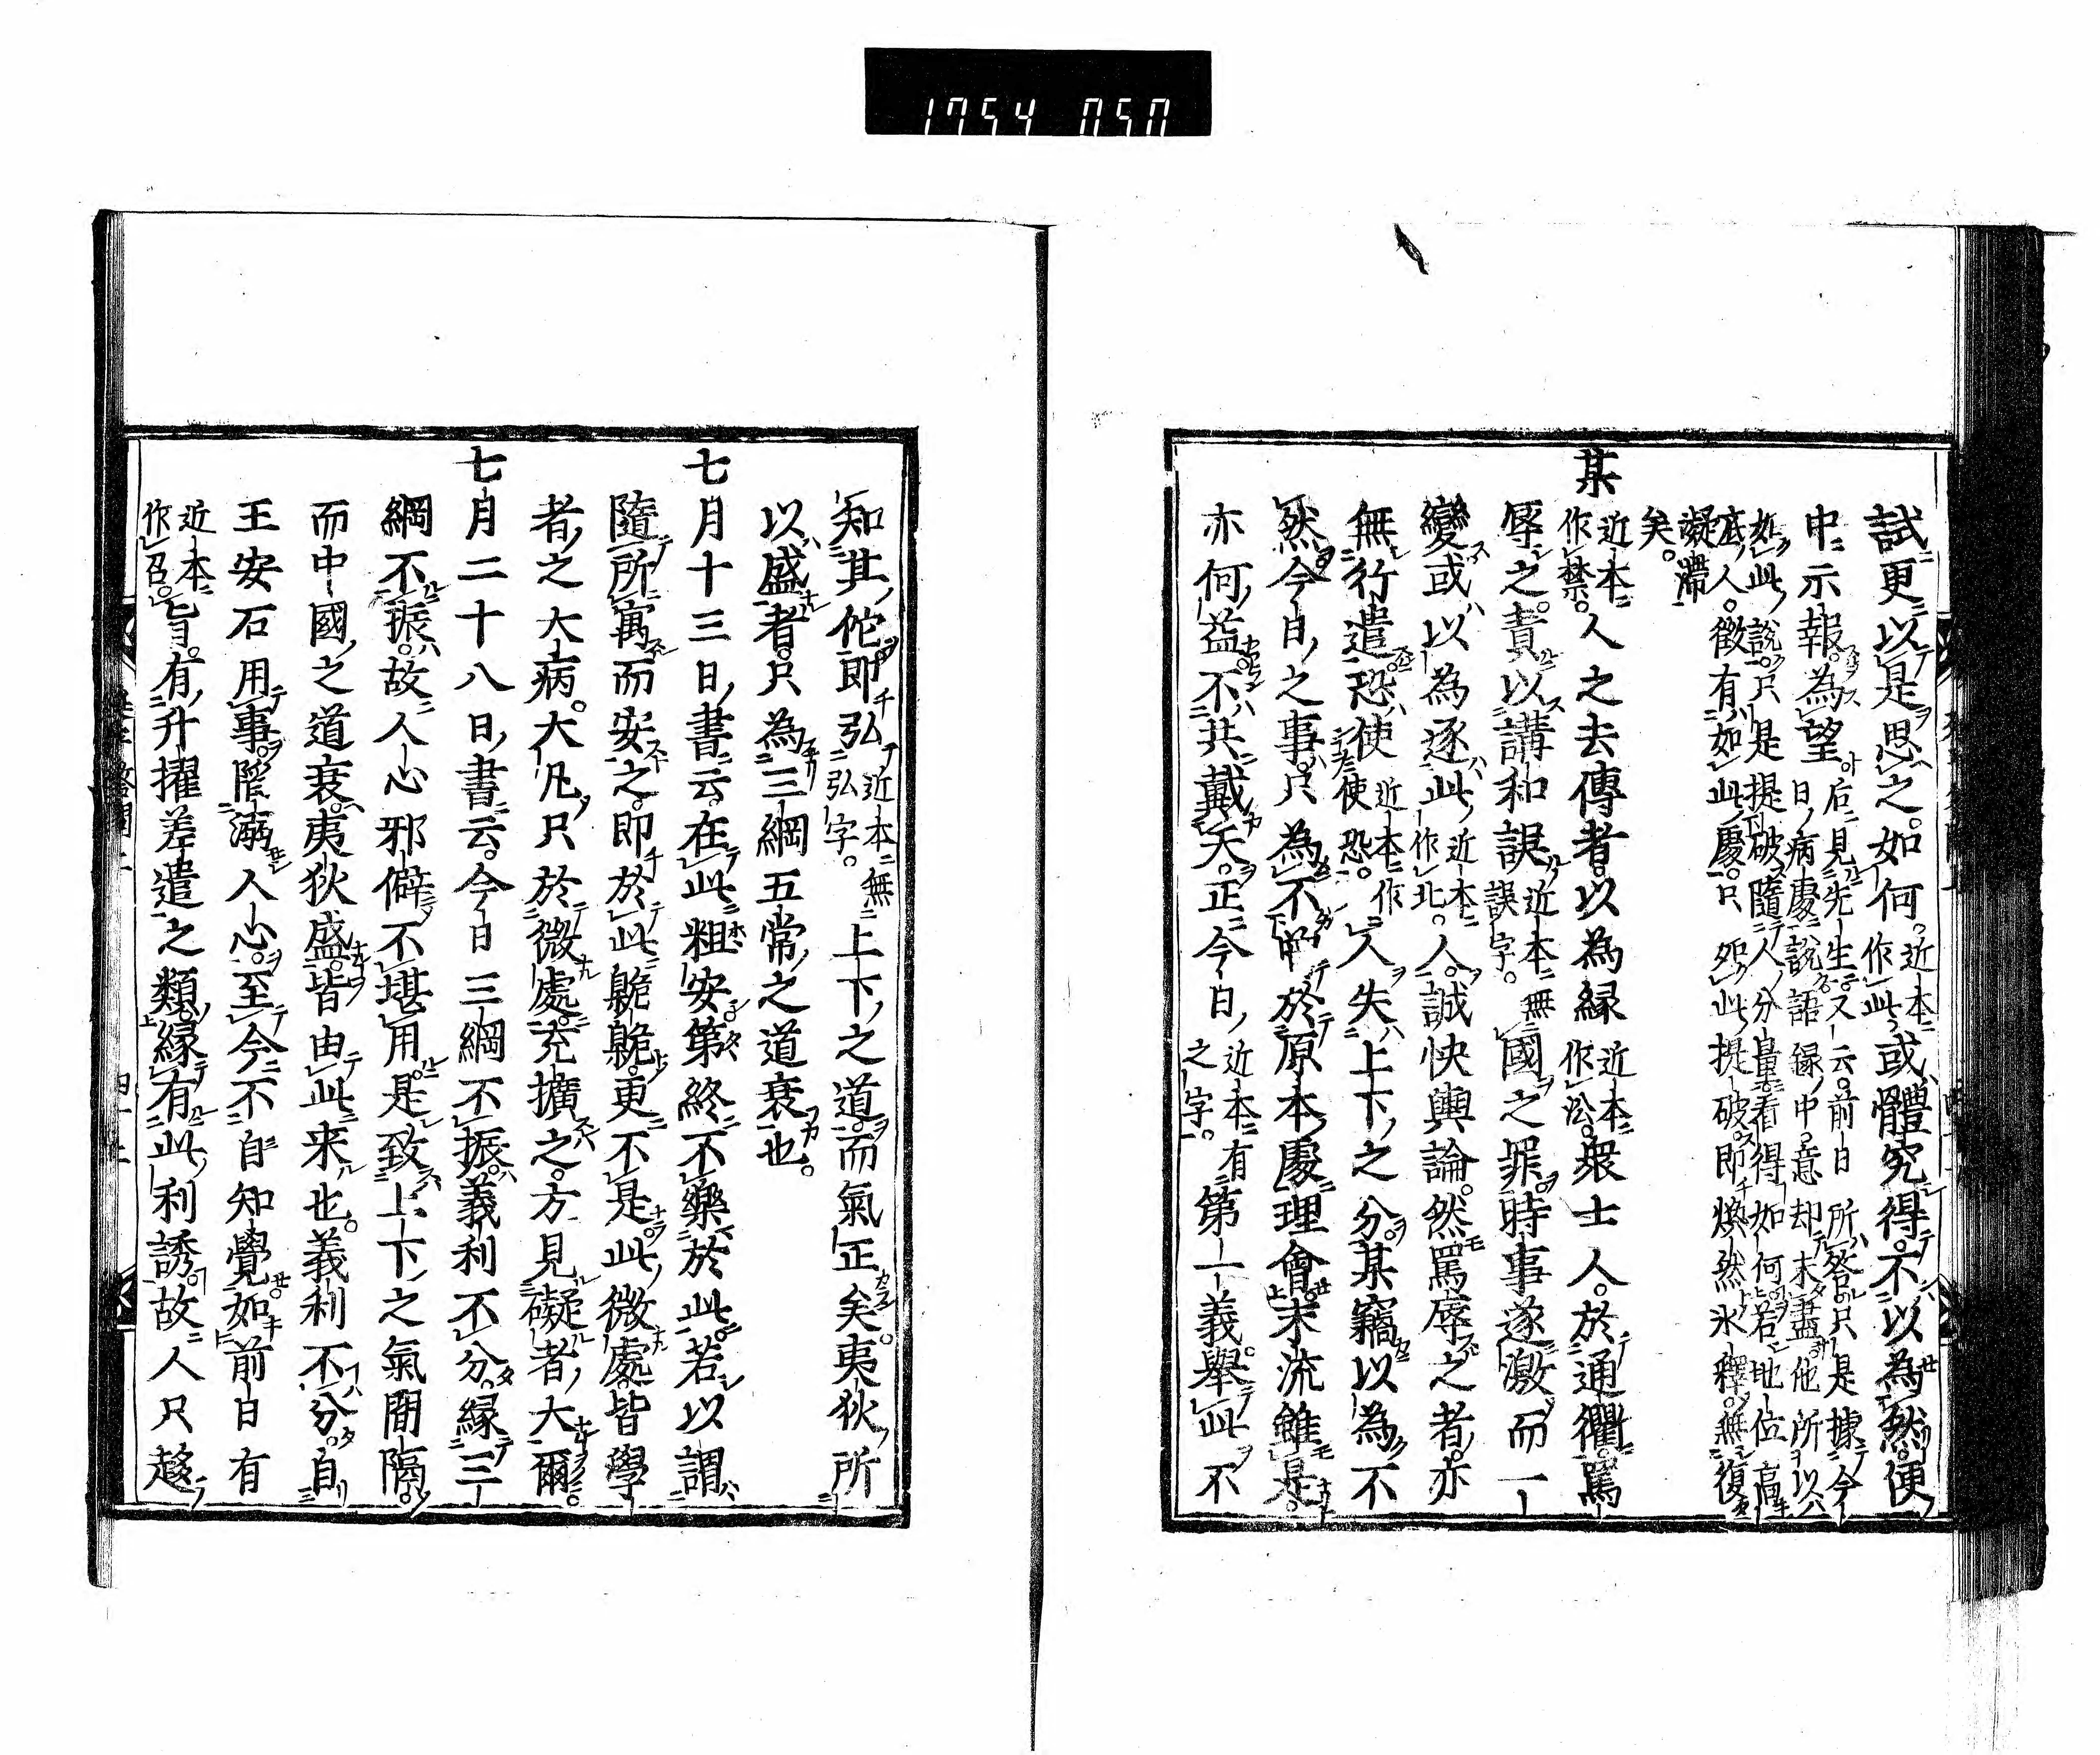 1754 050
試更以是思之如何近本作此或體究得不以為然便
中示報為望后見先生又云前日所答只是據今日病處說語録中意却未盡他所以
如此說只是提破隨人分量看得如何若地位高底人微有如此處只怨此提破即煥然氷釋無復
凝滯矣
某近本作禁人之去傳者以為縁近本作訟衆士人於通衢罵
辱之責以講和誤近本無誤字國之罪時事遂激而一
變或以為逐此近本作北人誠快輿論然罵辱之者亦
無行遣恐使近本作使恐人失上下之分某竊以為不
然今日之事只為不曽於原本處理會末流雖是
亦何益不共戴天正今日近本有之字第一義舉此不
知其佗即弘近本無弘字上下之道而氣正矣夷狄所
以盛者只為三綱五常之道衰也
七月十三日書云在此粗安第終不樂於此若以謂
隨所寓而安之即於此臲卼更不是此微處皆學
者之大病大凡只於微處充擴之方見礙者大爾
七月二十八日書云今日三綱不振義利不分縁三
綱不振故人心邪僻不堪用是致上下之氣間隔
而中國之道衰夷狄盛皆由此来也義利不分自
王安石用事陷溺人心至今不自知覺如前日有
近本作召旨有升擢差遣之類縁有此利誘故人只趍